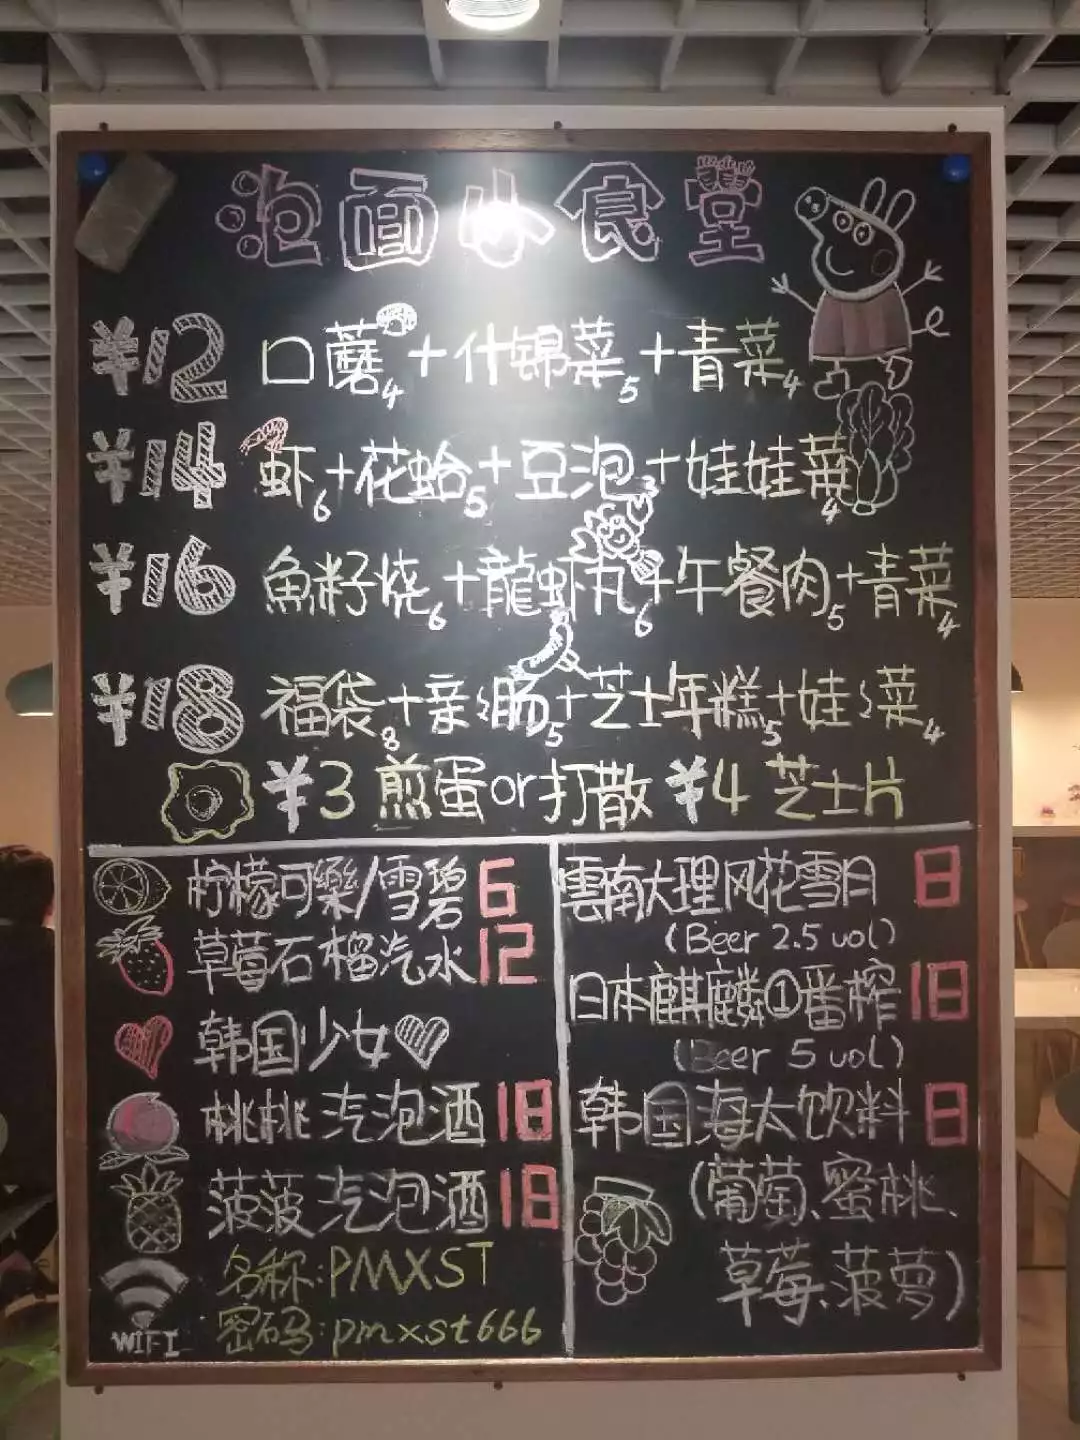 泡面小食堂
¥12 口蘑4+什锦菜5+青菜4
¥14 虾6+花蛤5+豆泡3+娃娃菜4
¥16 魚籽烧6+龍虾丸6+午餐肉5+青菜4
¥18 福袋8+亲亲肠5+芝士年糕5+娃娃菜4
¥3 煎蛋or打散 ¥4 芝士片
柠檬可樂/雪碧 6
草莓石榴汽水 12
韩国少女
桃桃汽泡酒 18
菠菠汽泡酒 18
名称:PMXST
密码:pmxst666
WIFI
雲南大理风花雪月 8
(Beer 2.5 vol)
日本麒麟①番榨 18
(Beer 5 vol)
韩国海太饮料 8
(葡萄、蜜桃、
草莓、菠萝)